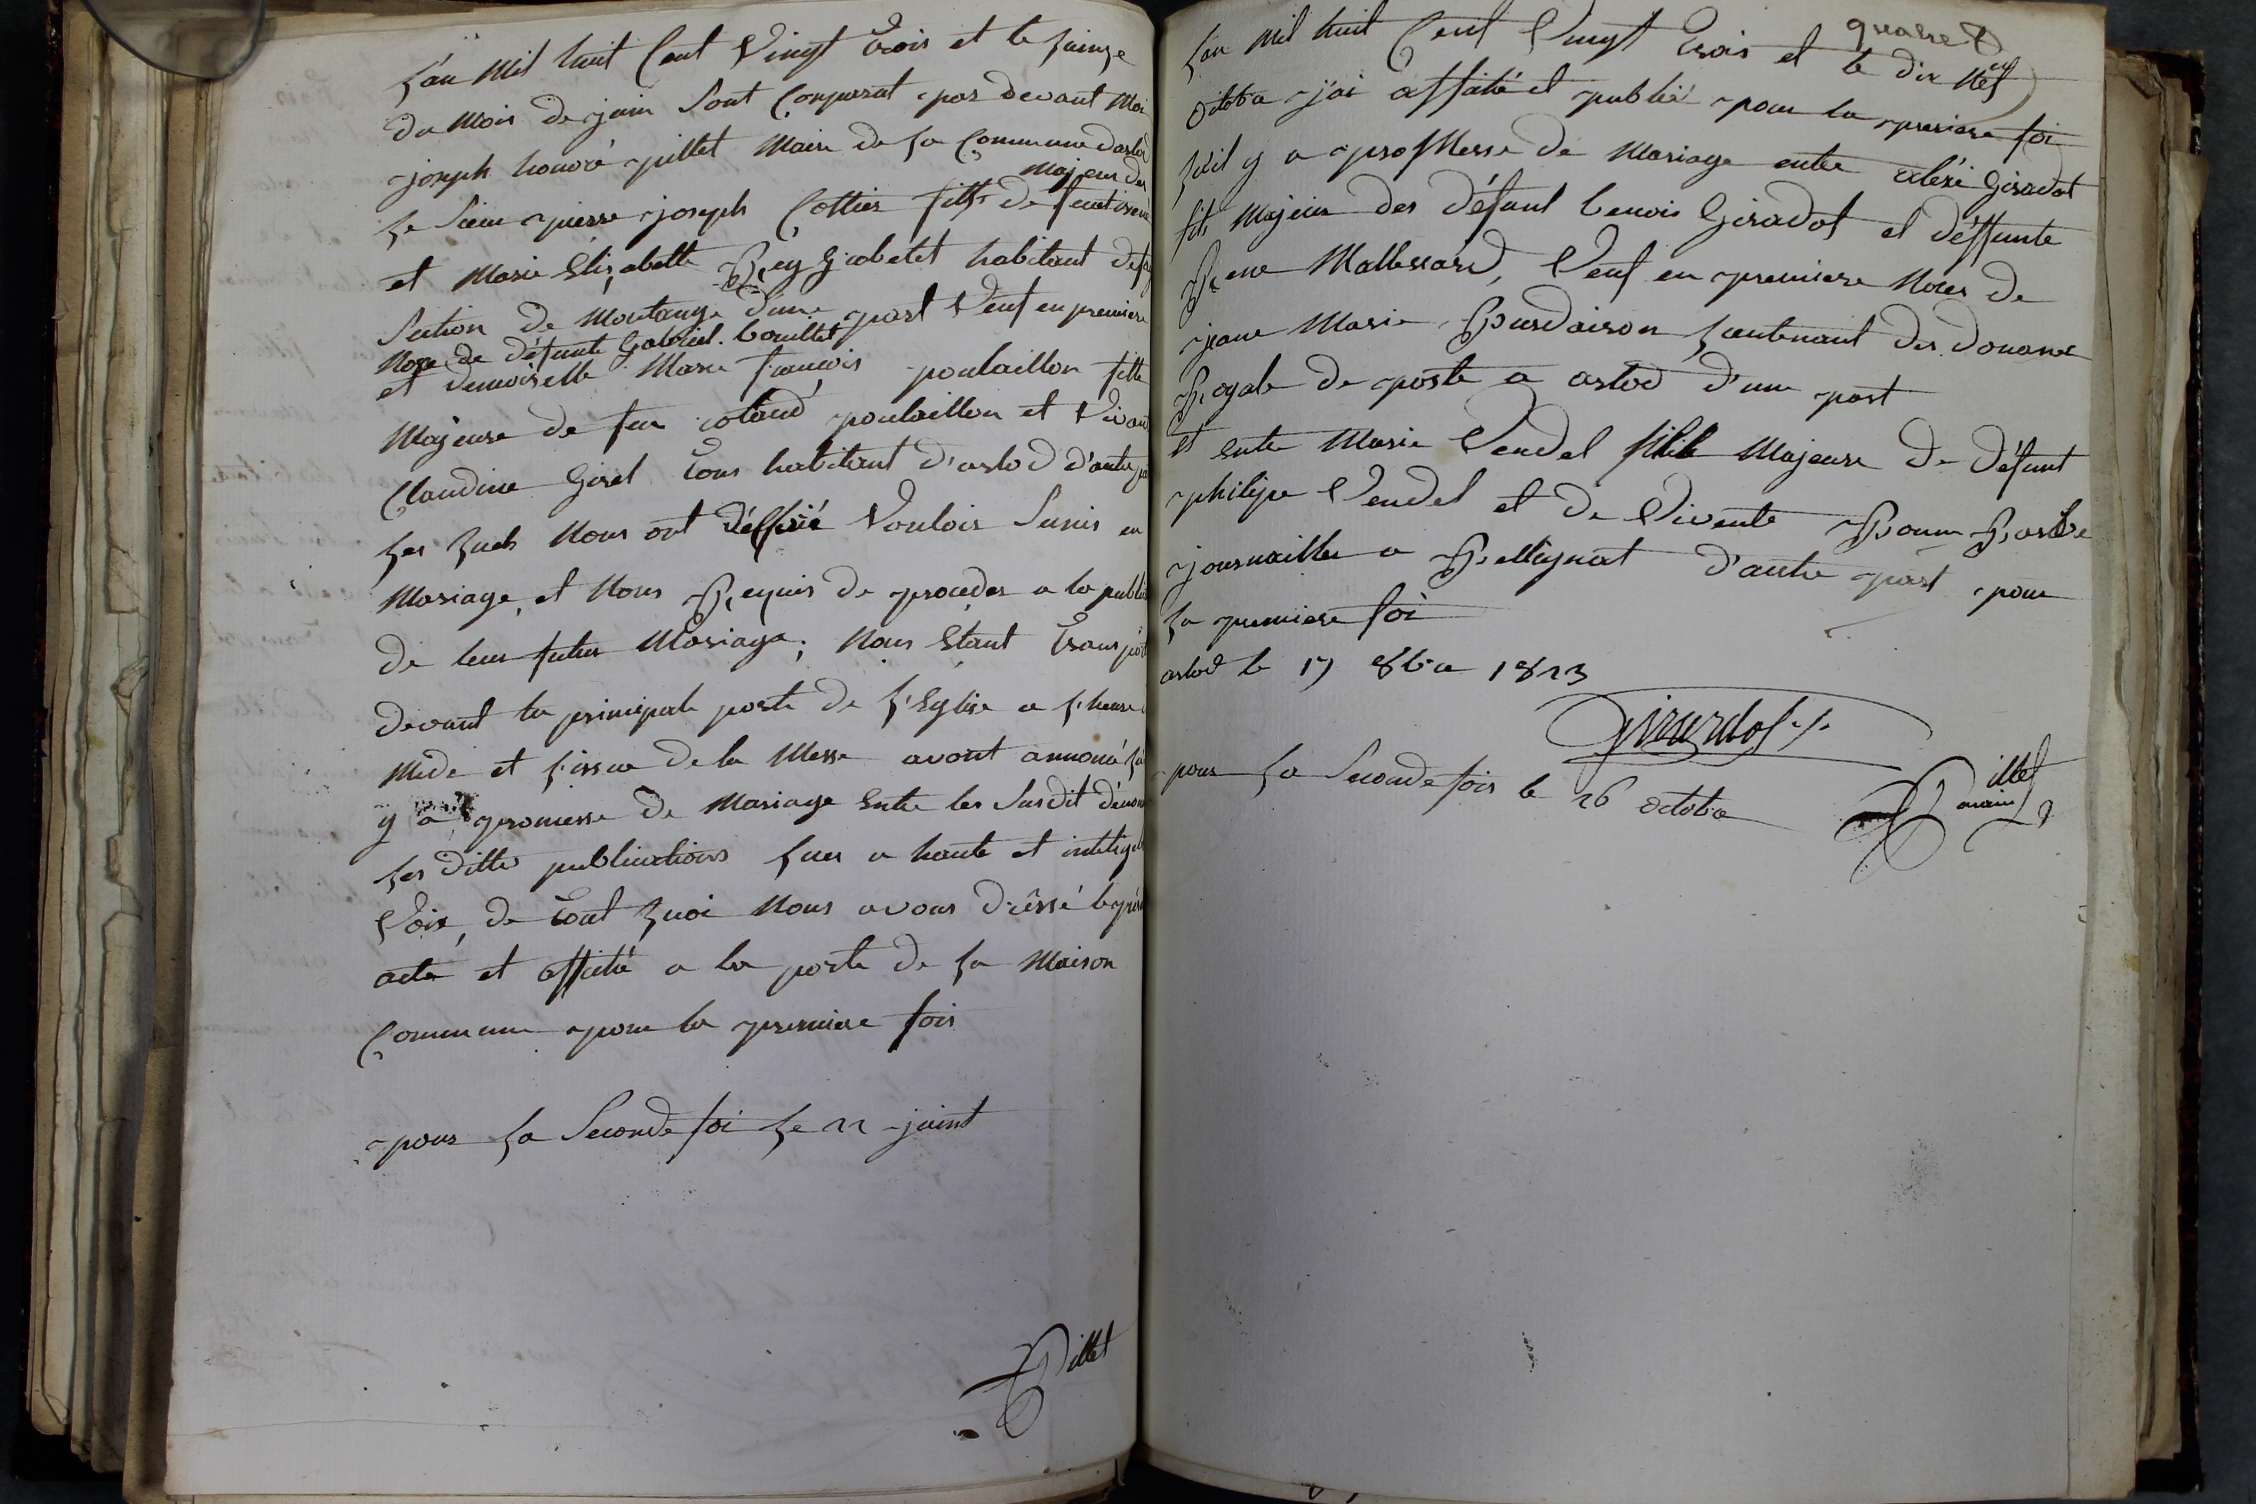 L'an mil huit Cent Vingt trois et le quinze
du mois de juin Sont Comparut par devant moi
joseph honoré pillet maire de la Commune d'arlod
majeur des
Le Sieur pierre joseph Cottier fils de
et Marie Elisabette habitant de la
Section de Montange d'une part Veuf en premiere
Nose de défunte Gabriel. bouillet
et demoiselle Marie françois poulaillon fille
Majeure de feu colaud poulaillon et Vivante
Claudine Girel tous habitant d'arlod d'autre par
Les quels Nous ont Vouloir Sunir en
Mariage, et Nous Requis de proceder a la public
de leur futur Mariage; Nous Etant transport
devant la principale porte de l'Eglise a l'heure
Mede et l'issue de la Messe avont annoncé
y a promesse de Mariage Entre les Susdit dénom
Les ditte publications lues a haute et inteligibl
Voix, de tout quoi Nous avons drêssé le prés
acte et affiché a la porte de la Maison
Commune pour la premiere fois
pour La Seconde foi Le 22 juint
Pillet
quatre
L'an mil huit Cent Vingt trois et le dix Neuf
octobre j'ai affiché et publié pour la premiere foi
quil y a proMesse de Mariage entre alexi Giradot
fils Majeur des défunt benois Giradot et déffunte
Rene Mallessard, Veuf en premiere Noces de
jeane Marie Lieutenant des douane
Royale de poste a arlod d'une part
et entre Marie Vendel fille Majeure de défunt
philipe Vendel et de Vivente
journaillier a Bellignat d'autre part pour
La premiere foi
arlod le 19 8bre 1823
Girardot
pour La Seconde fois le 26 octobre
Pillet
maire